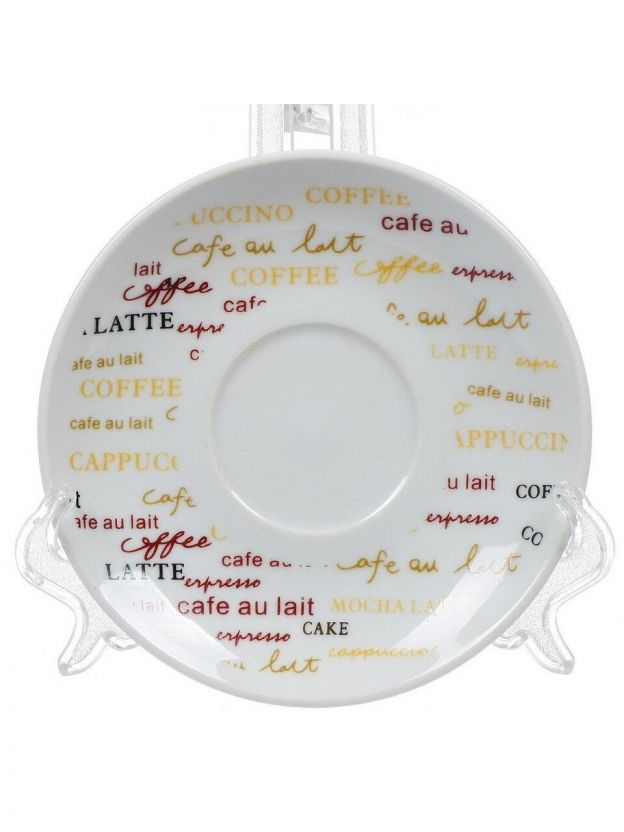 COFFEE
UCCINO cafe au
cafe au lait
lait COFFEE coffee erpresso
coffee cafe
LATTE erpresso au lait
LATTE
afe au lait erpre
COFFEE cafe au lait
cafe au lait
APPUCCIN
CAPPUCC
u lait COF
cafe
afe au lait erpresso
coffee CO
cafe au afe au lait
LATTE erpresso
lait cafe au lait MOCHA LATTE
erpresso CAKE
cappuccino
au lait